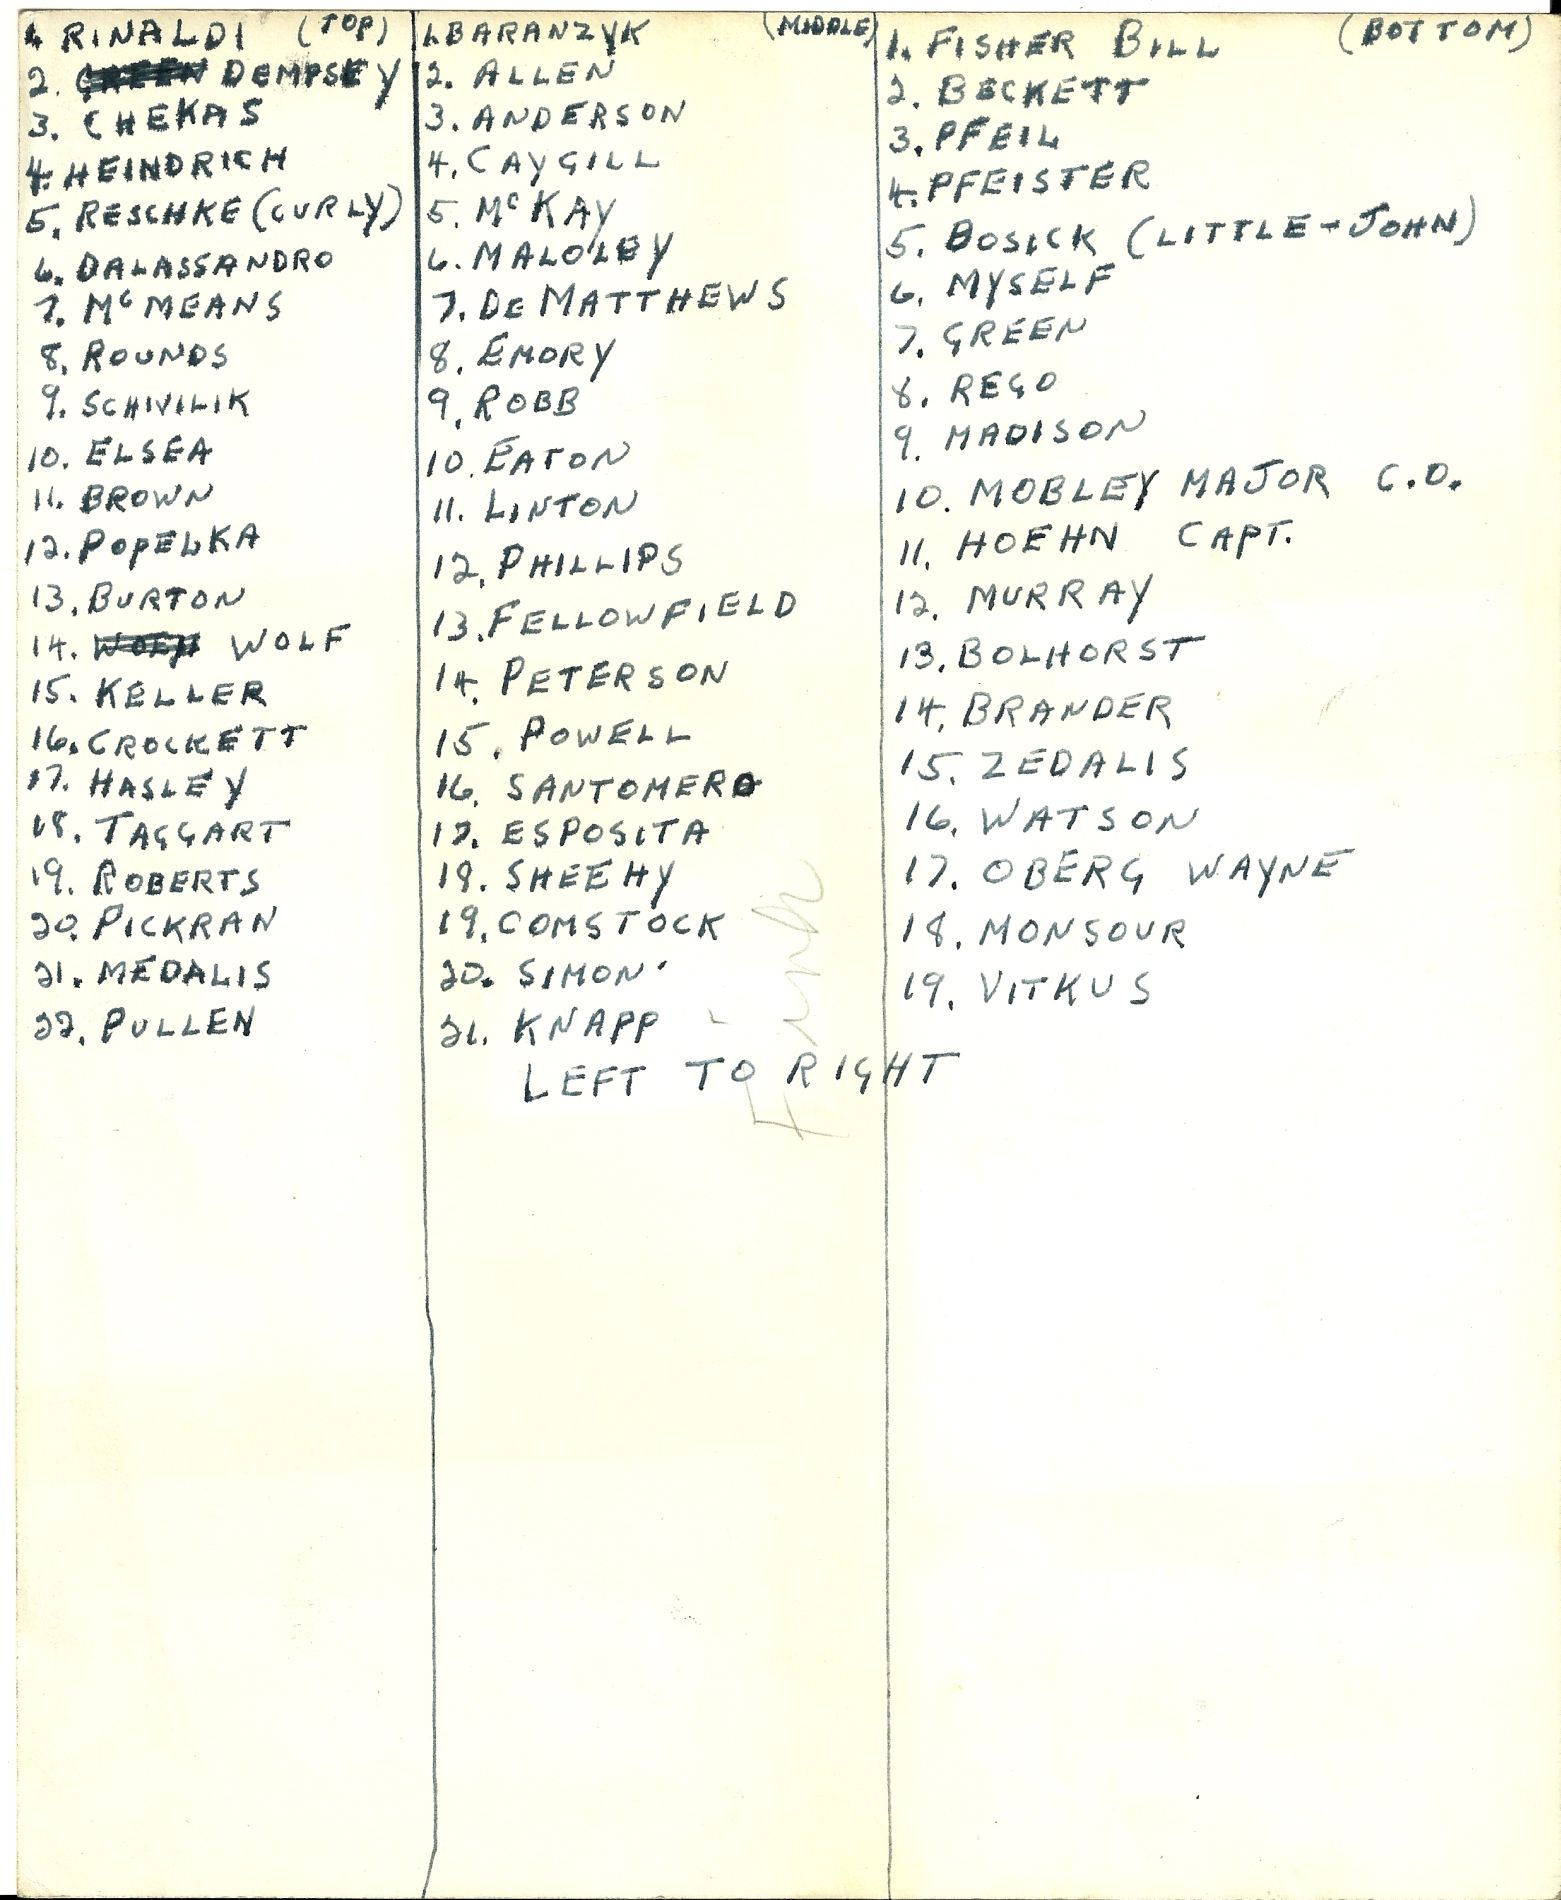 1. RINALDI (TOP)
2. GREEN DEMPSEY
3. CHEKAS
4. HEINDRICH
5. RESCHKE (CURLY)
6. DALASSANDRO
7. McMEANS
8. ROUNDS
9. SCHIVILIK
10. ELSEA
11. BROWN
12. POPELKA
13. BURTON
14. WOLF
15. KELLER
16. CROCKETT
17. HASLEY
18. TAGGART
19. ROBERTS
20. PICKRAN
21. MEDALIS
22. PULLEN
1. BARANZYK (MIDDLE)
2. ALLEN
3. ANDERSON
4. CAYGILL
5. McKAY
6. MALOLEY
7. DE MATTHEWS
8. EMORY
9. ROBB
10. EATON
11. LINTON
12. PHILLIPS
13. FELLOWFIELD
14. PETERSON
15. POWELL
16. SANTOMERO
17. ESPOSITA
18. SHEEHY
19. COMSTOCK
20. SIMON
21. KNAPP
1. FISHER BILL (BOTTOM)
2. BECKETT
3. PFEIL
4. PFEISTER
5. BOSICK (LITTLE-JOHN)
6. MYSELF
7. GREEN
8. REGO
9. MADISON
10. MOBLEY MAJOR C.O.
11. HOEHN CAPT.
12. MURRAY
13. BOLHORST
14. BRANDER
15. ZEDALIS
16. WATSON
17. OBERG WAYNE
18. MONSOUR
19. VITKUS
LEFT TO RIGHT
Fink